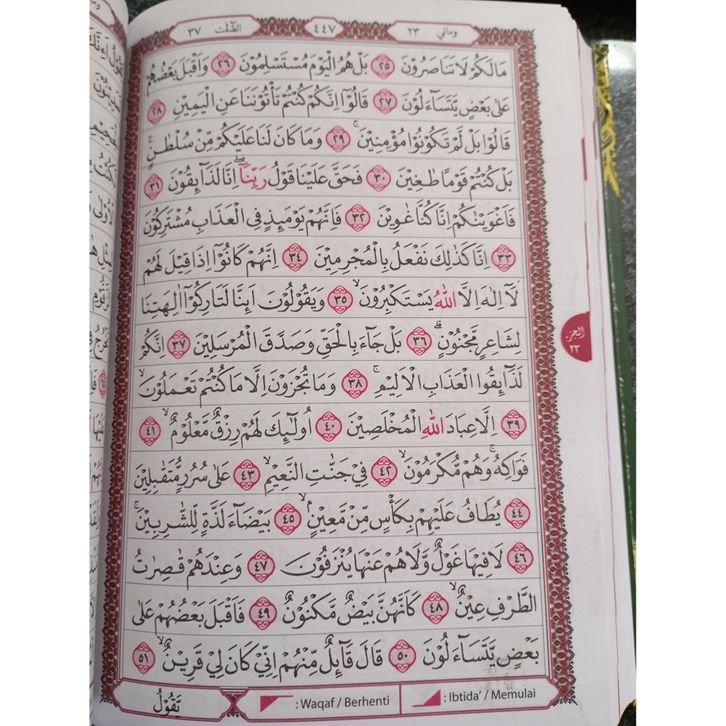 الصّٰۤفّٰت ٣٧ ٤٤٧ وماني ٢٣
مَا لَكُمْ لَا تَنَاصَرُوْنَ ٢٥ بَلْ هُمُ الْيَوْمَ مُسْتَسْلِمُوْنَ ٢٦ وَاَقْبَلَ بَعْضُهُمْ
عَلٰى بَعْضٍ يَّتَسَاۤءَلُوْنَ ٢٧ قَالُوْٓا اِنَّكُمْ كُنْتُمْ تَأْتُوْنَنَا عَنِ الْيَمِيْنِ ٢٨
قَالُوْا بَلْ لَّمْ تَكُوْنُوْا مُؤْمِنِيْنَۚ ٢٩ وَمَا كَانَ لَنَا عَلَيْكُمْ مِّنْ سُلْطٰنٍۚ
بَلْ كُنْتُمْ قَوْمًا طٰغِيْنَ ٣٠ فَحَقَّ عَلَيْنَا قَوْلُ رَبِّنَآ ۖاِنَّا لَذَاۤىِٕقُوْنَ ٣١
فَاَغْوَيْنٰكُمْ اِنَّا كُنَّا غٰوِيْنَ ٣٢ فَاِنَّهُمْ يَوْمَىِٕذٍ فِى الْعَذَابِ مُشْتَرِكُوْنَ
٣٣ اِنَّا كَذٰلِكَ نَفْعَلُ بِالْمُجْرِمِيْنَ ٣٤ اِنَّهُمْ كَانُوْٓا اِذَا قِيْلَ لَهُمْ
لَآ اِلٰهَ اِلَّا اللّٰهُ يَسْتَكْبِرُوْنَۙ ٣٥ وَيَقُوْلُوْنَ اَىِٕنَّا لَتَارِكُوْٓا اٰلِهَتِنَا
لِشَاعِرٍ مَّجْنُوْنٍۗ ٣٦ بَلْ جَاۤءَ بِالْحَقِّ وَصَدَّقَ الْمُرْسَلِيْنَ ٣٧ اِنَّكُمْ
لَذَاۤىِٕقُوا الْعَذَابِ الْاَلِيْمِۚ ٣٨ وَمَا تُجْزَوْنَ اِلَّا مَا كُنْتُمْ تَعْمَلُوْنَۙ
٣٩ اِلَّا عِبَادَ اللّٰهِ الْمُخْلَصِيْنَ ٤٠ اُولٰۤىِٕكَ لَهُمْ رِزْقٌ مَّعْلُوْمٌۙ ٤١
فَوَاكِهُ ۚوَهُمْ مُّكْرَمُوْنَۙ ٤٢ فِيْ جَنّٰتِ النَّعِيْمِۙ ٤٣ عَلٰى سُرُرٍ مُّتَقٰبِلِيْنَ
٤٤ يُطَافُ عَلَيْهِمْ بِكَأْسٍ مِّنْ مَّعِيْنٍۢۙ ٤٥ بَيْضَاۤءَ لَذَّةٍ لِّلشّٰرِبِيْنَۚ
٤٦ لَا فِيْهَا غَوْلٌ وَّلَا هُمْ عَنْهَا يُنْزَفُوْنَ ٤٧ وَعِنْدَهُمْ قٰصِرٰتُ
الطَّرْفِ عِيْنٌۙ ٤٨ كَاَنَّهُنَّ بَيْضٌ مَّكْنُوْنٌ ٤٩ فَاَقْبَلَ بَعْضُهُمْ عَلٰى
بَعْضٍ يَّتَسَاۤءَلُوْنَ ٥٠ قَالَ قَاۤىِٕلٌ مِّنْهُمْ اِنِّيْ كَانَ لِيْ قَرِيْنٌۙ ٥١
يَّقُوْلُ : Waqaf / Berhenti : Ibtida' / Memulai
الجزء
٢٣